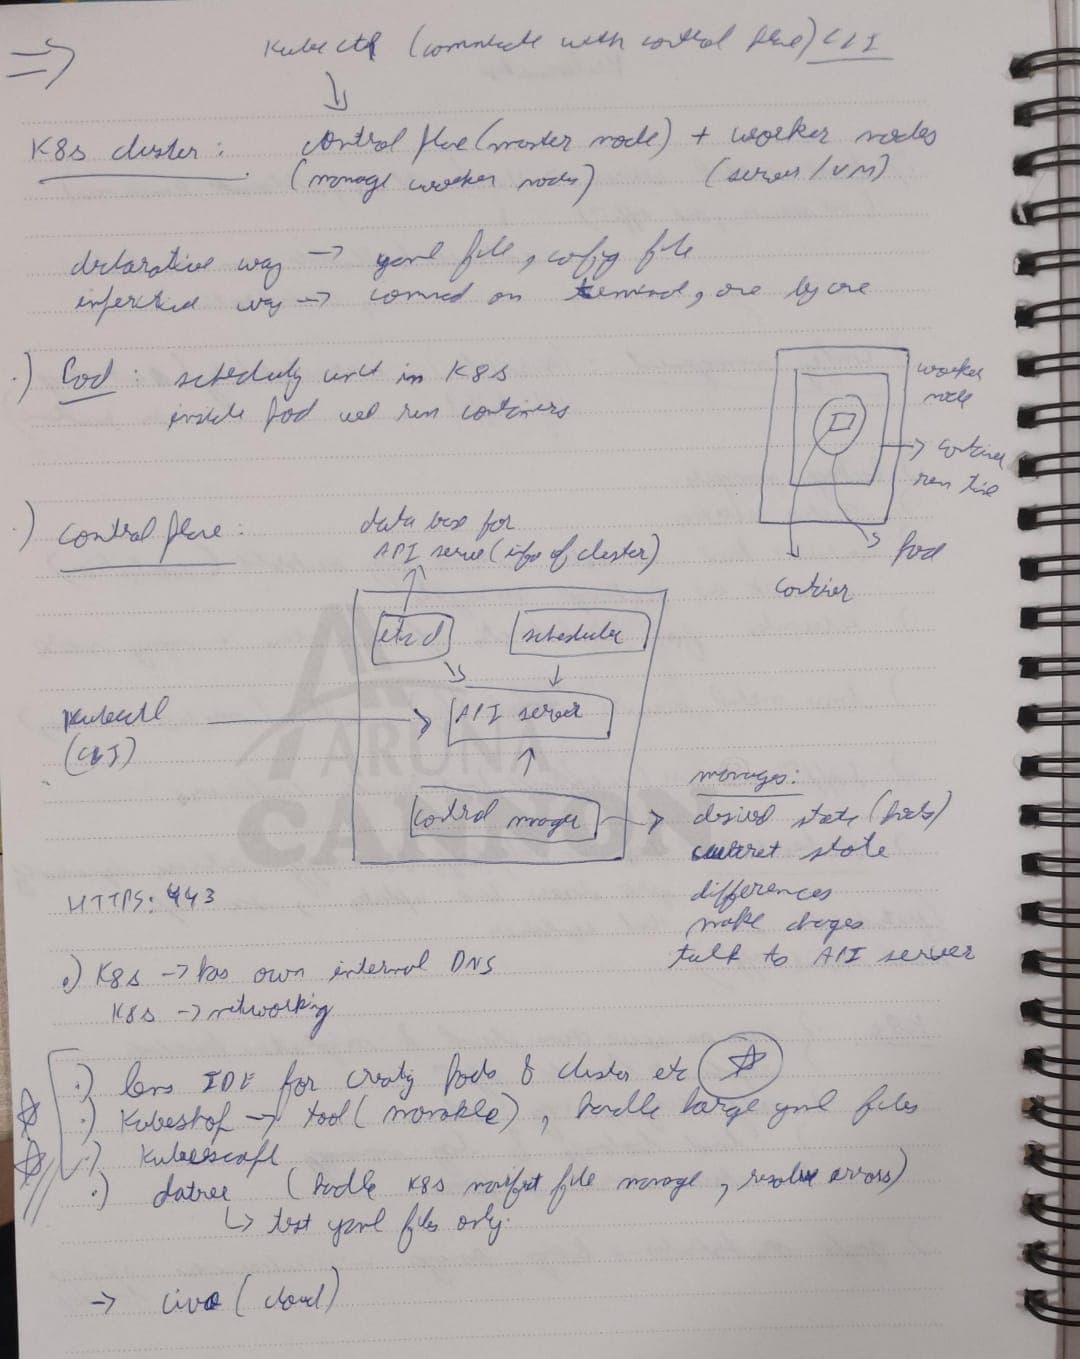 => Kubectl (commnicate with control plane) CLI
K8s cluster : control plane (master node) + worker nodes
(manage worker nodes) (server / VM)
declarative way -> yaml file, config file
way -> command on terminal, one by one
.) Pod : scheduling unit in K8s
inside pod we run containers
worker
node
container
run time
Pod
container
.) control plane :
data base for
API server (info of cluster)
etcd
scheduler
API server
Kubectl
(CLI)
control manager
manages:
desired state (pods)
current state
differences
make changes
talk to API server
HTTPS: 443
.) K8s -> has own internal DNS
K8s -> networking
.) lens IDE for creating Pods & cluster etc
.) Kubeshop -> tool (monokle), handle large yaml files
.) Kubescape
.) datree (handle K8s manifest file manage, resolve errors)
-> test yaml files only.
-> civo (cloud)
ARUNA
CANNON